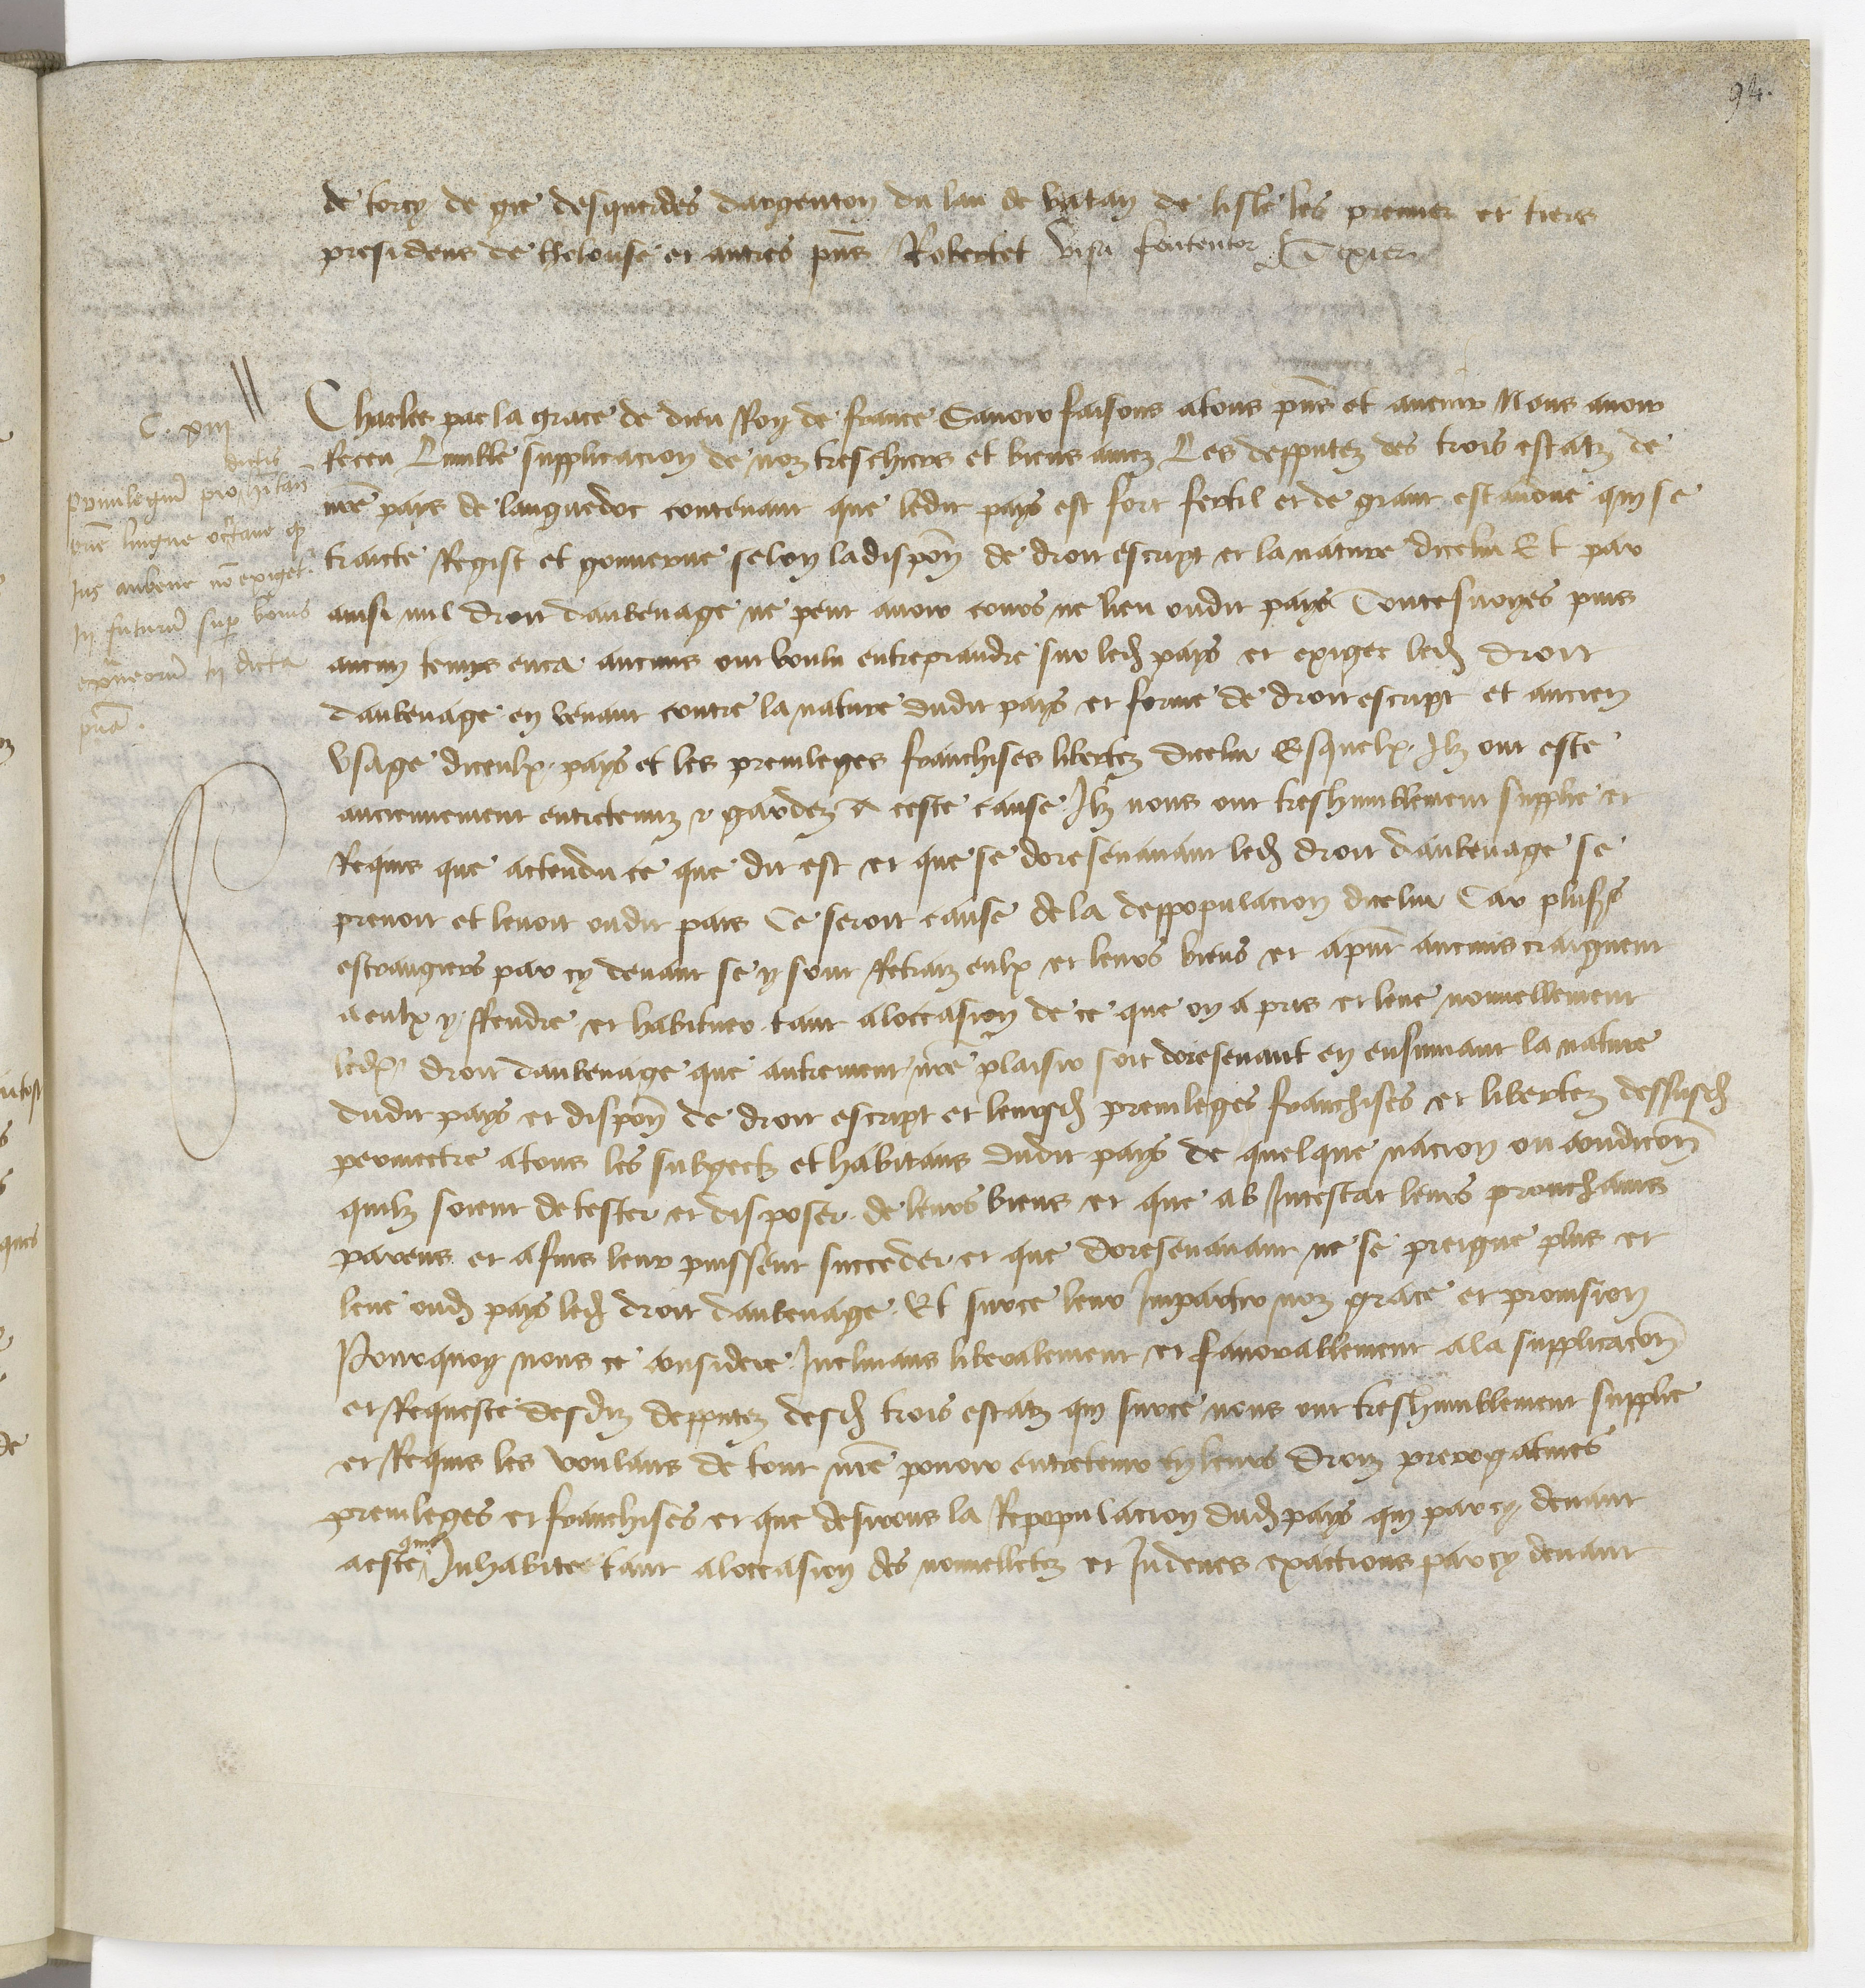 94.
de torcy de gie desquerdes dargenton du lau de vatan de lisle les premier et tiers
presidens de tholouse et autres pn̄s Robertet visa contentor Texier
C. xiii
privilegiū pro hītan̄
dictis
lingue occitane q̄
Jus aubene nō exiget
In futurū sup bonis
extn̄eorū in dicta
pn̄a.
Charles par la grace de dieu Roy de france Savoir faisons atous pn̄s et avenir Nous avoir
Receu Lumble supplicacion de noz treschiers et biens amez Les depputez des trois estatz de
nr̄e pays de languedoc contenant que ledit pays est fort fertil et de grant estandue qui se
traicte Regist et gouverne selon la dispōn de droit escript et la nature dicelui Et par
ainsi nul droit daubenage ne peut avoir cours ne lieu oudit pays Toutesvoyes puis
aucun temps enca aucuns ont voulu entreprandre sur led pays et exiger led droit
daubenage en venant contre la nature dudit pays et forme de droit escript et ancien
usage diceulx pays et les previleges franchises libertez dicelui Esquelx Ilz ont este
anciennement entretenuz & gardez A ceste cause Ilz nous ont treshumblement supplie et
Requis que actendu ce que dit est et que se doresenavant led droit daubenage se
prenoit et levoit oudit pais Ce seroit cause de la deppopulacion dicelui Car plus̄s
estrangiers par cy devant se y sont Retraiz eulx et leurs biens et apn̄t aucuns craignent
a eulx y Rendre et habituer tant aloccasion de ce que on a pris et leve nouvellement
led droit daubenage que autrement nr̄e plaisir soit doresenavant en ensuivant la nature
dudit pays et dispōn de droit escript et leursd previleges franchises et libertez dessusd
permectre atous les subgectz et habitans dudit pays de quelque nacion ou condicōn
quilz soient de tester et disposer de leurs biens et que ab Intestat leurs prouchains
parens et afins leur puissent succeder et que doresenavant ne se preigne plus et
leve oud pays led droit daubenage Et surce leur Impartir noz grace et provision
Pourquoy nous ce considere Inclinans liberalement et favorablement ala supplicacōn
et Requeste desdiz depputez desd trois estatz qui surce nous ont treshumblement supplie
et Requis les voulans de tout nr̄e povoir entretenir en leurs droiz prerogatives
previleges et franchises et que desirons la Repopulacion dud pays qui par cy devant
aeste Inhabite tant aloccasion des nouvelletez et Indeues exactions par cy devant